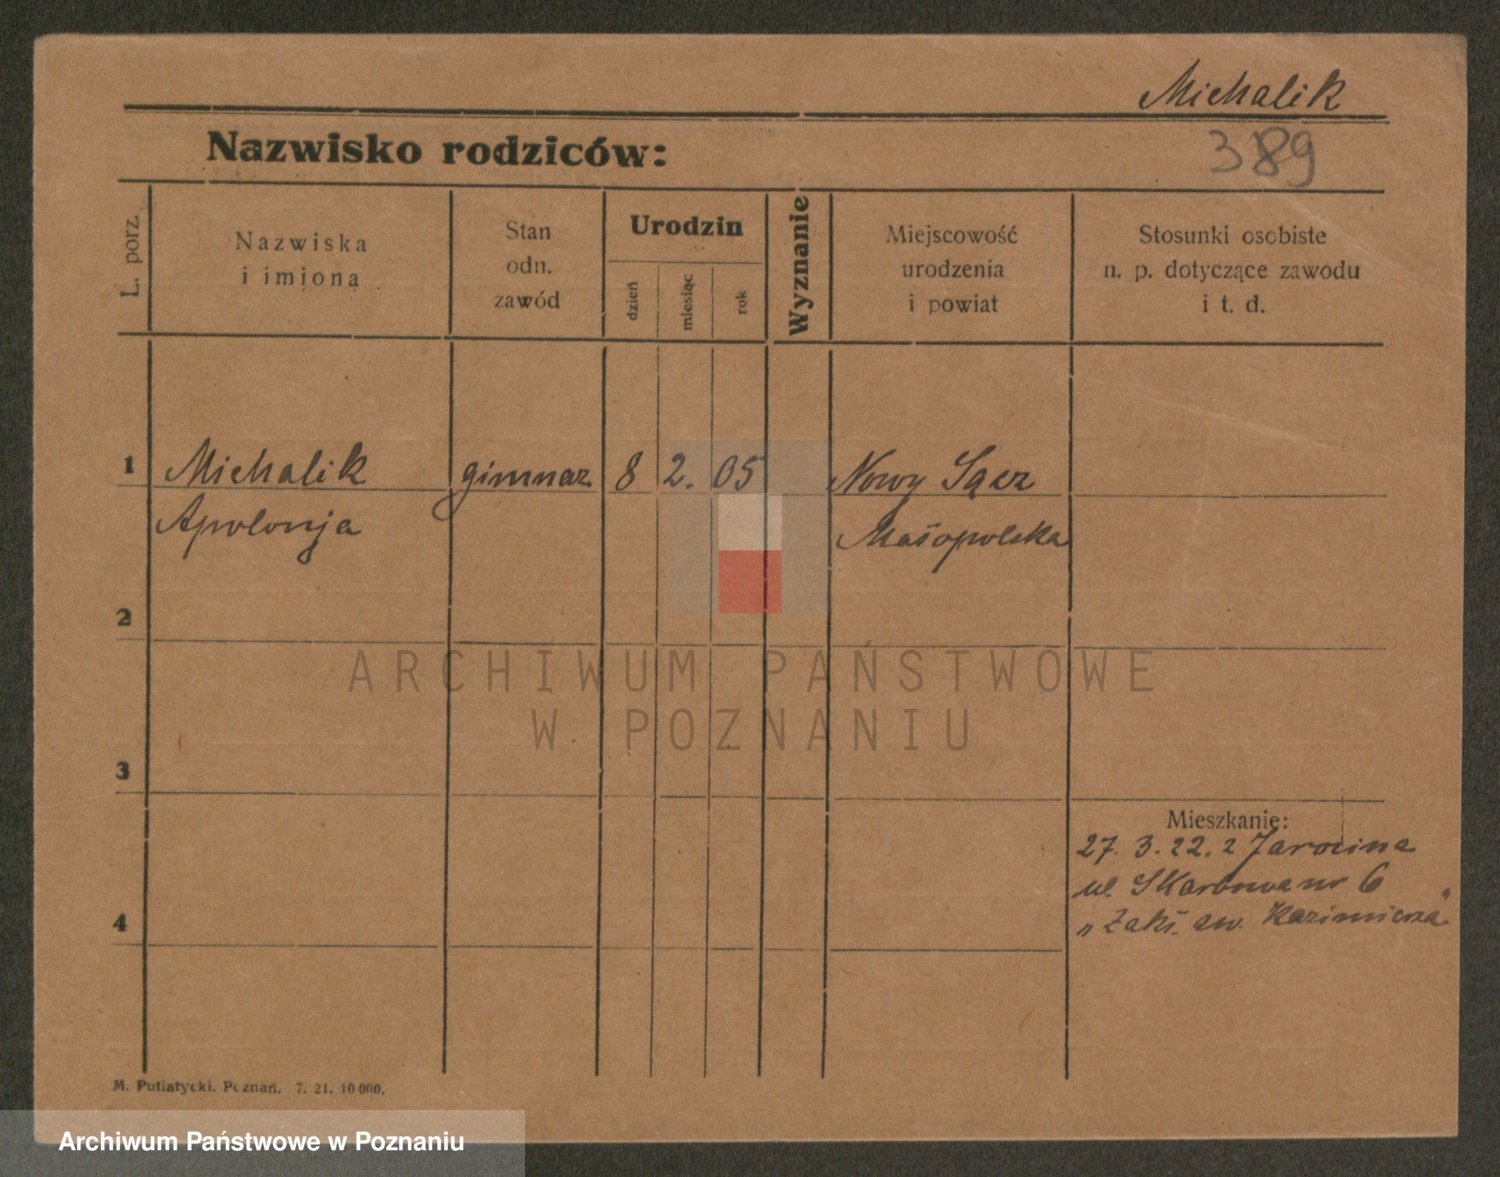 Michalik
389
Nazwisko rodziców:
L. porz.
Nazwiska
i imiona
Stan
odn.
zawód
Urodzin
dzień
miesiąc
rok
Wyznanie
Miejscowość
urodzenia
i powiat
Stosunki osobiste
n. p. dotyczące zawodu
i t. d.
1 Michalik gimnaz. 8 2. 05 Nowy Sącz
Apolonja Małopolska
2
ARCHIWUM PAŃSTWOWE
W POZNANIU
3
Mieszkanie:
27. 3. 22. z Jarocina
ul. Skarbowa nr 6
4
„Zakł. św. Kazimierza"
M. Putiatycki. Poznań. 7. 21. 10 000.
Archiwum Państwowe w Poznaniu